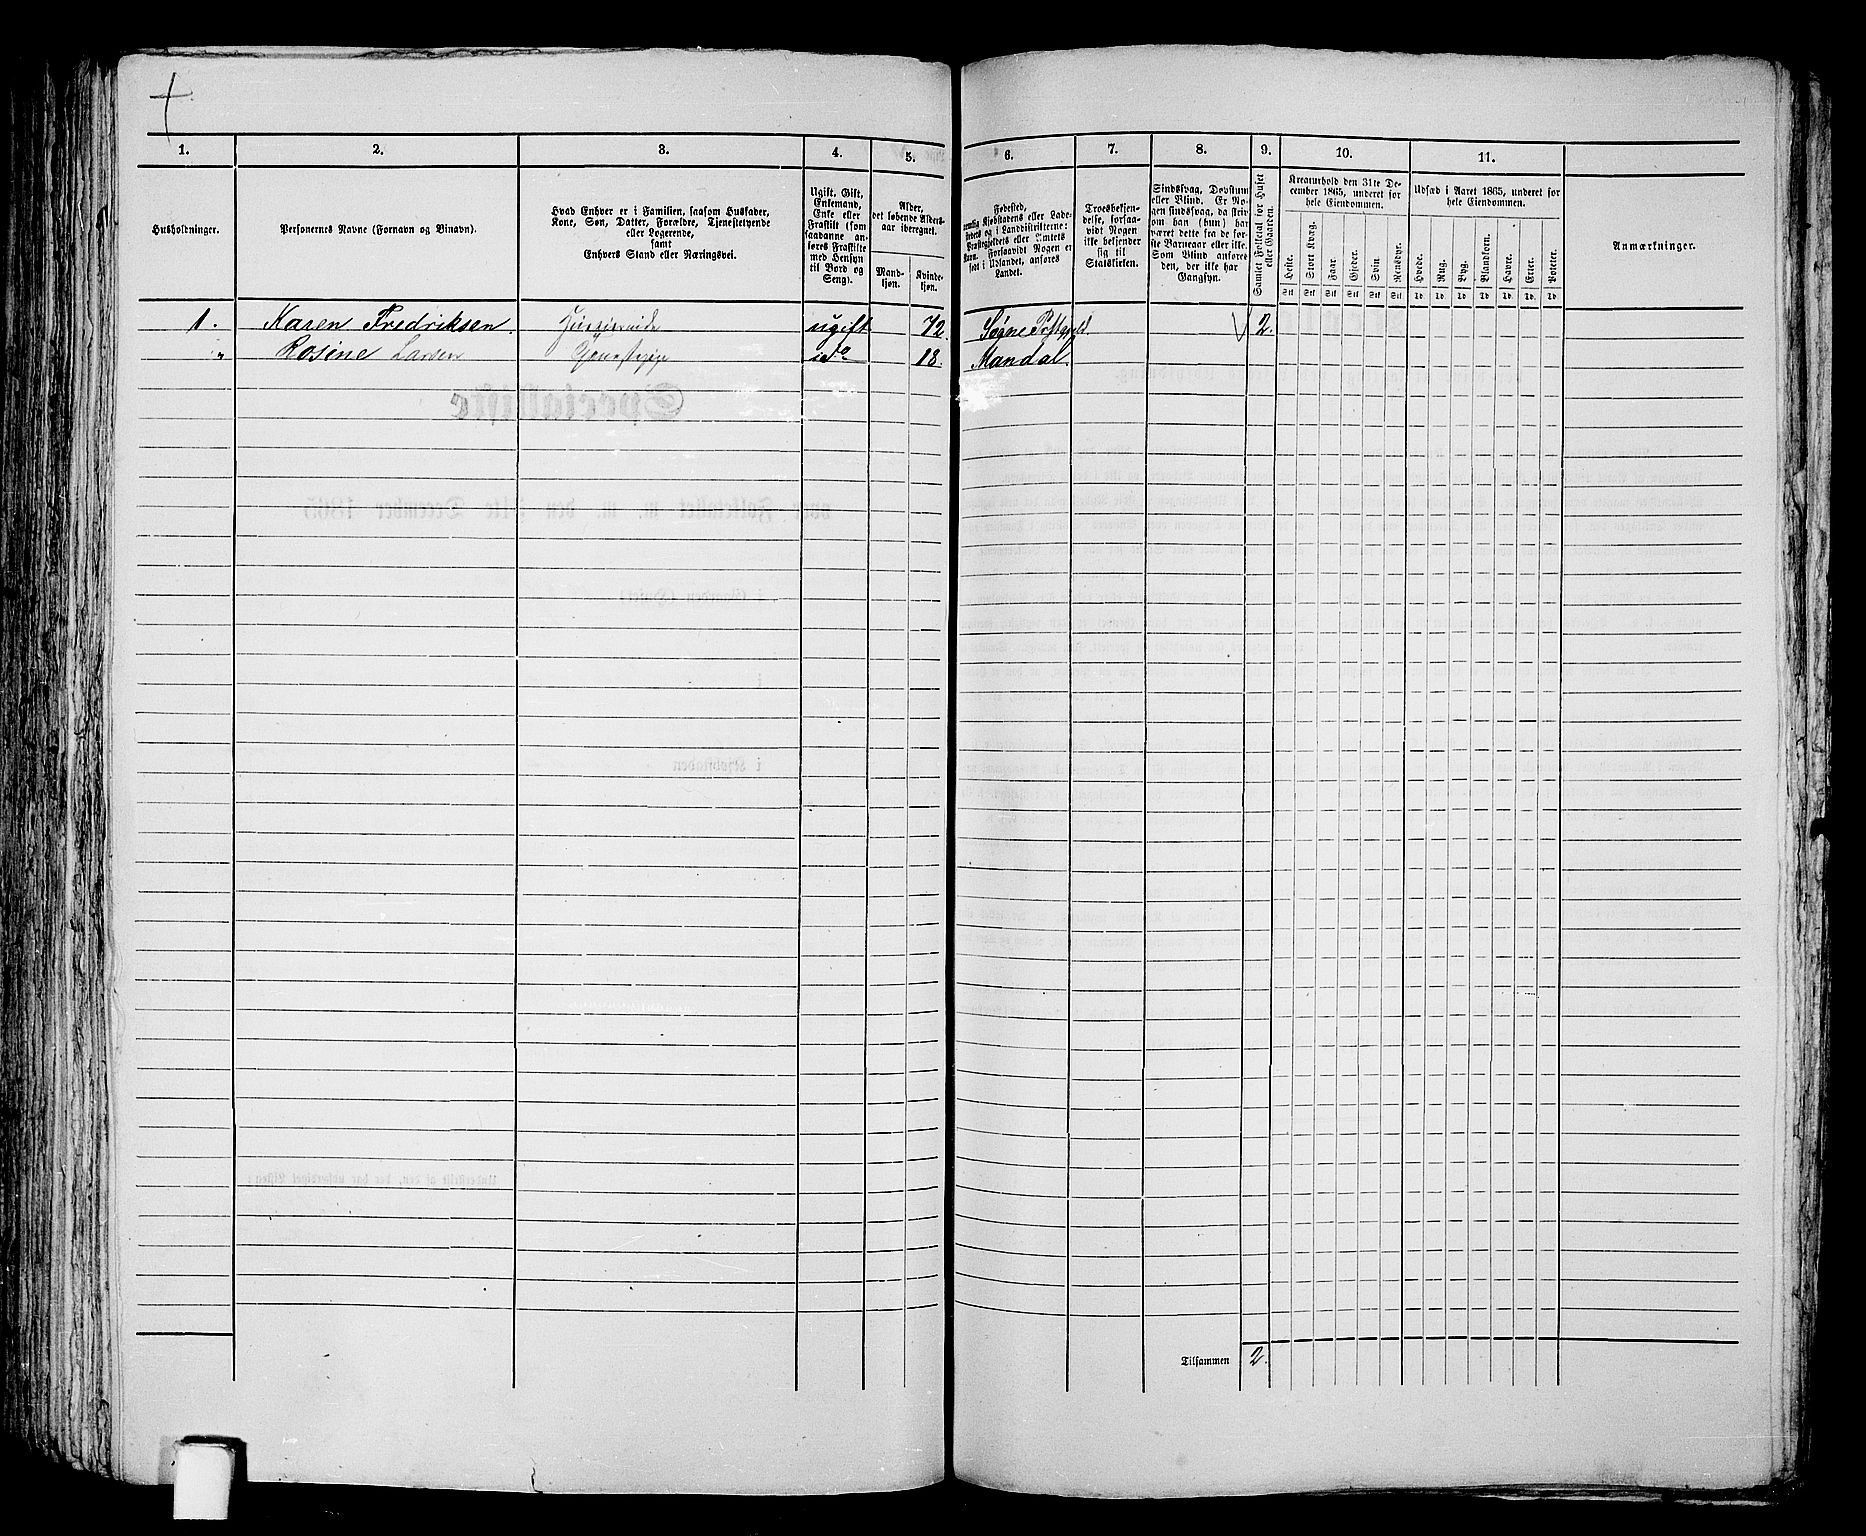 1. 2. 3. 4. 5. 6. 7. 8. 9. 10. 11.
Husholdninger.
Personernes Navne (Fornavn og Binavn).
Hvad Enhver er i Familien, saasom Husfader,
Kone, Søn, Datter, Forældre, Tjenestetyende
eller Logerende,
samt
Enhvers Stand eller Næringsvei.
Ugift, Gift,
Enkemand,
Enke eller
Fraskilt (som
saadanne an-
føres Fraskilte
med Hensyn
til Bord og
Seng).
Alder,
det løbende Alders-
aar iberegnet.
Mand-
kjøn.
Kvinde-
kjøn.
Fødested,
nemlig Kjøbstadens eller Lade-
stedets og i Landdistrikterne:
Præstegjeldets eller Amtets
Navn. Forsaavidt Nogen er
født i Udlandet, anføres
Landet.
Troesbekjen-
delse, forsaa-
vidt Nogen
ikke bekjender
sig til
Statskirken.
Sindssvag, Døvstum
eller Blind. Er No-
gen sindssvag, da skriv
om han (hun) har
været dette fra de før-
ste Barneaar eller ikke.
Som Blind anføres
den, der ikke har
Gangsyn.
Samlet Folketal for Huset
eller Gaarden.
Kreaturhold den 31te De-
cember 1865, underet for
hele Eiendommen.
Heste. Stort Kvæg. Faar. Gjeder. Svin. Rensdyr.
Stk Stk Stk Stk Stk Stk
Udsæd i Aaret 1865, underet for
hele Eiendommen.
Hvede. Rug. Byg. Blandkorn. Havre. Erter. Poteter.
Td. Td. Td. Td. Td. Td. Td.
Anmærkninger.
1. Karen Fredriksen. ugift 72. Søgne Pstgjeld 2.
" Rosine Larsen do 18. Mandal.
Tilsammen 2.